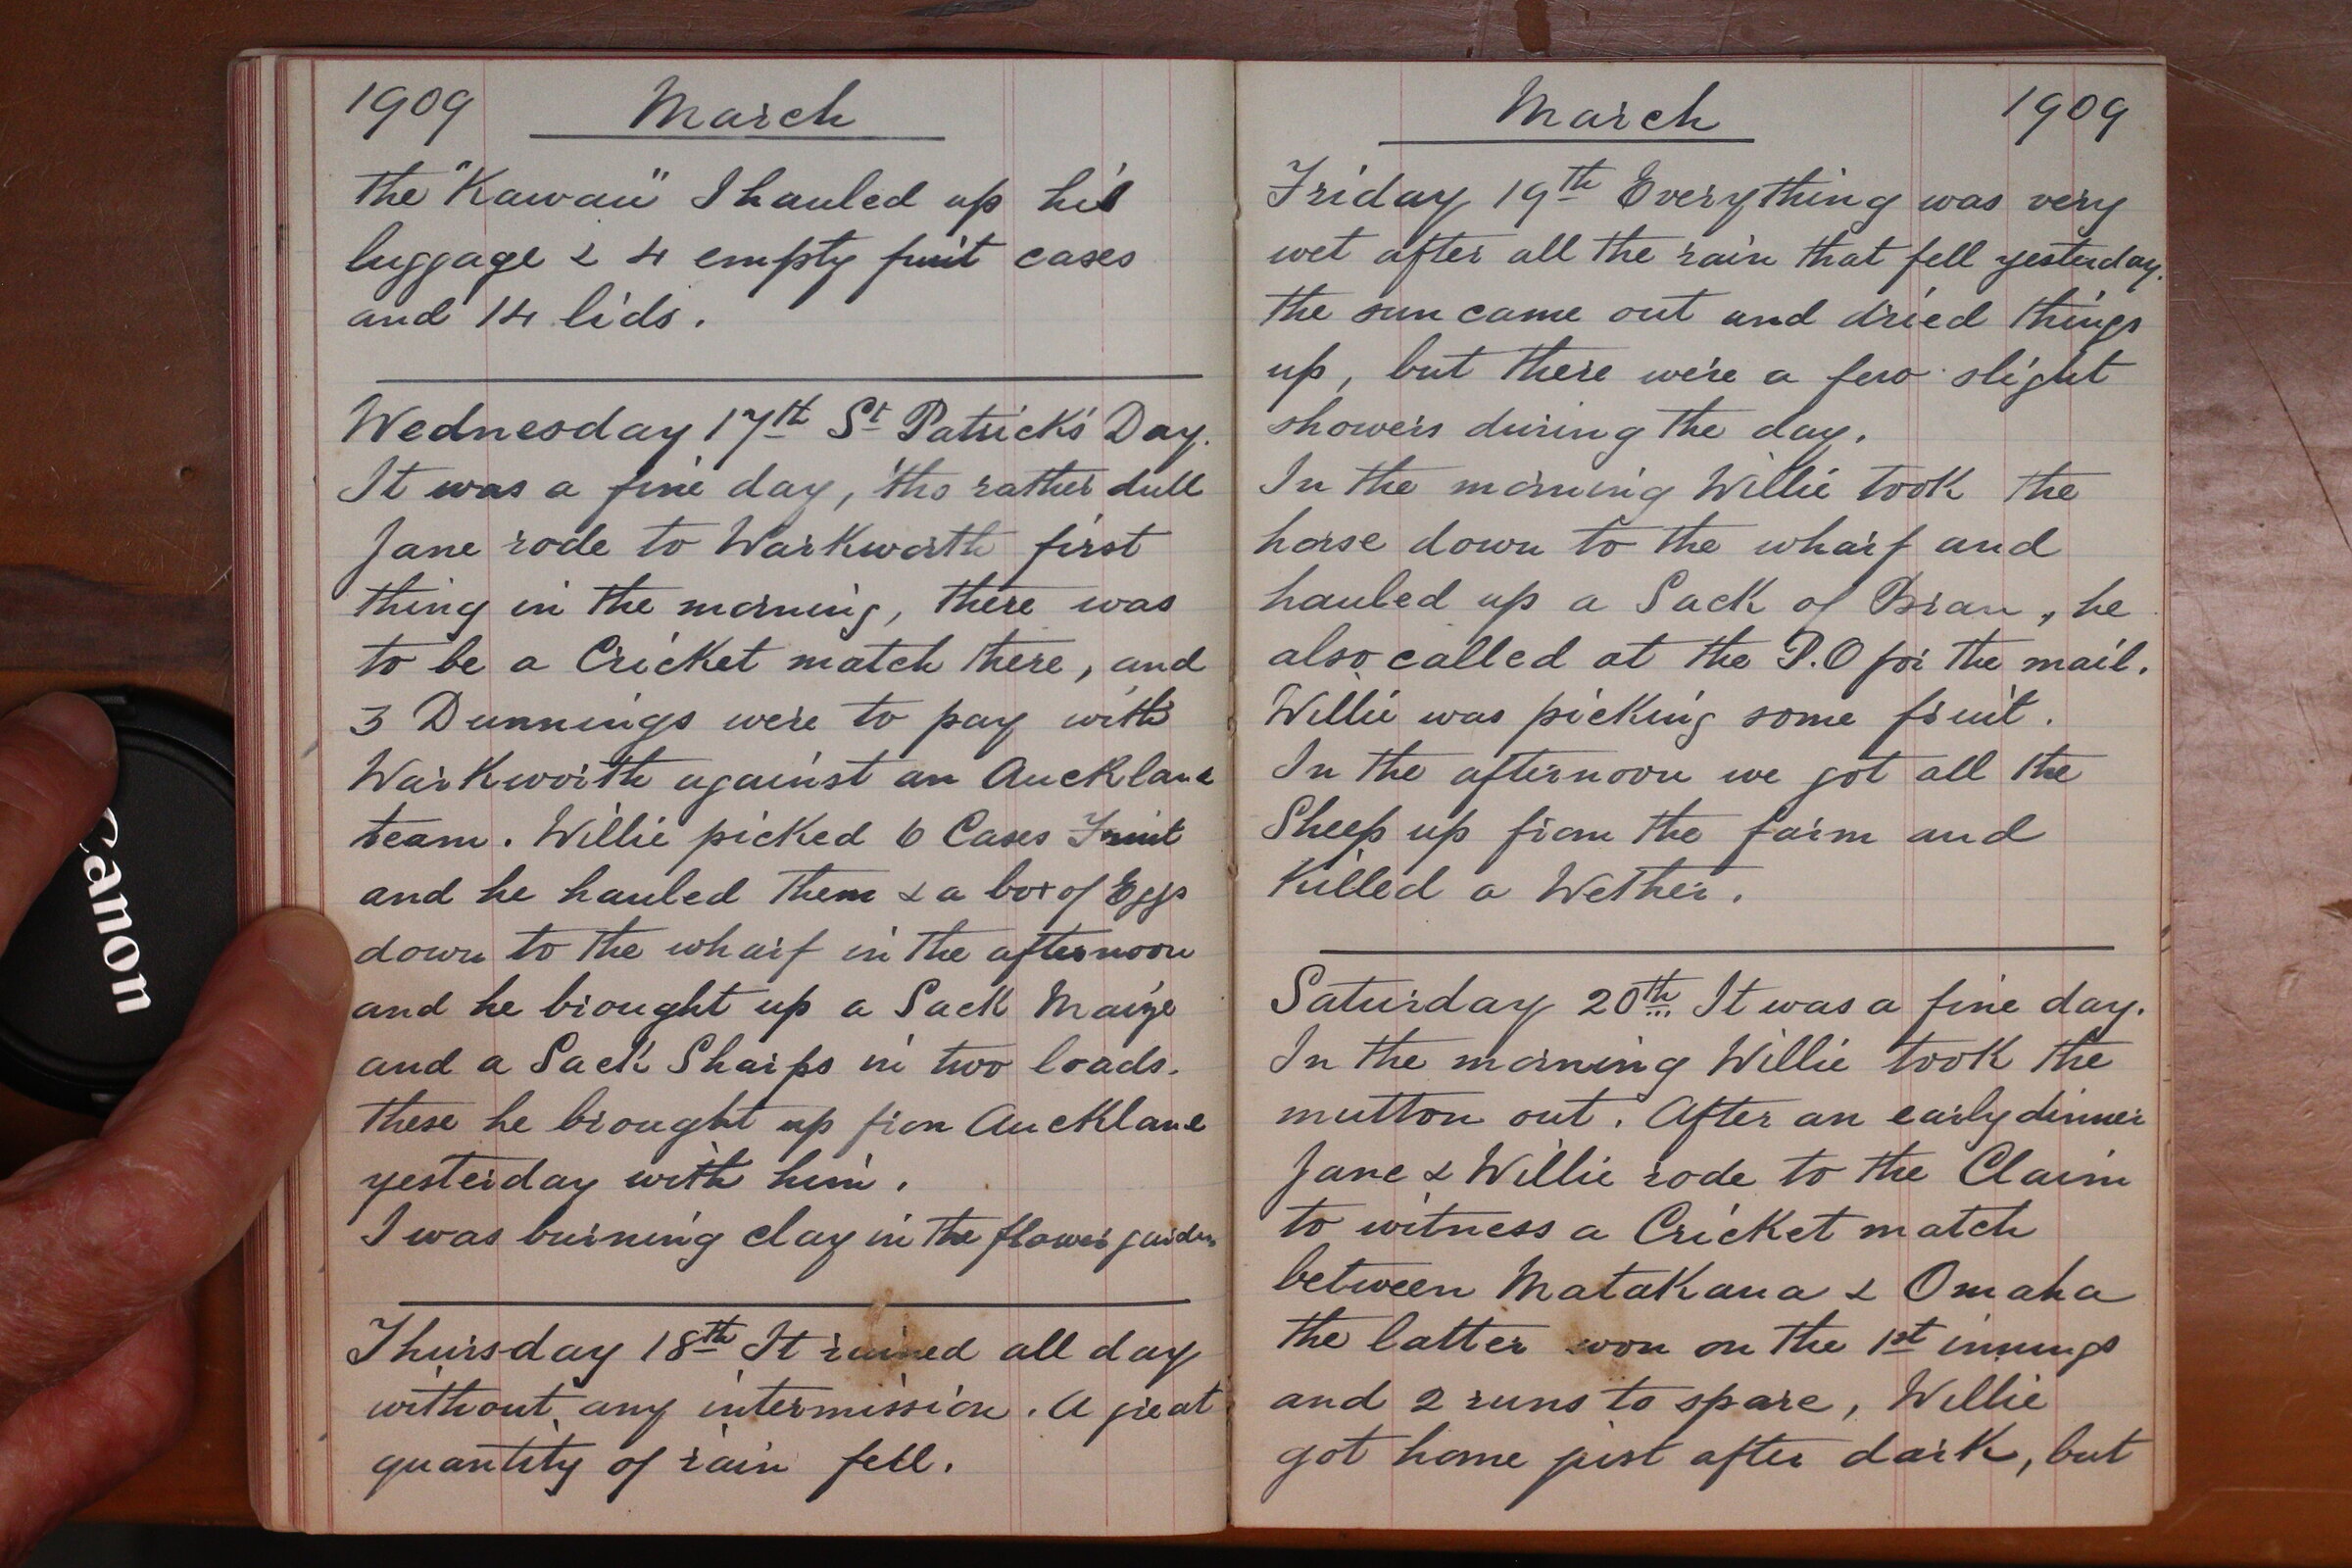 1909 March
the "Kawau" I hauled up his
luggage & 4 empty fruit cases
and 14 lids.
Wednesday 17th St Patrick's Day.
It was a fine day, 'tho rather dull
Jane rode to Warkworth first
thing in the morning, there was
to be a Cricket match there, and
3 Dunnings were to pay with
Warkworth against an Auckland
team. Willie picked 6 Cases Fruit
and he hauled them & a box of Eggs
down to the wharf in the afternoon
and he brought up a Sack Maize
and a Sack Sharps in two loads.
these he brought up from Auckland
yesterday with him.
I was burning clay in the flower garden
Thursday 18th It rained all day
without any intermission. A great
quantity of rain fell.
March 1909
Friday 19th Everything was very
wet after all the rain that fell yesterday.
the sun came out and dried things
up, but there were a few slight
showers during the day.
In the morning Willie took the
horse down to the wharf and
hauled up a Sack of Bran, he
also called at the P.O for the mail.
Willie was picking some fruit.
In the afternoon we got all the
Sheep up from the farm and
Killed a Wether.
Saturday 20th It was a fine day.
In the morning Willie took the
mutton out. After an early dinner
Jane & Willie rode to the Claim
to witness a Cricket match
between Matakana & Omaha
the latter won on the 1st innings
and 2 runs to spare, Willie
got home just after dark, but
Canon